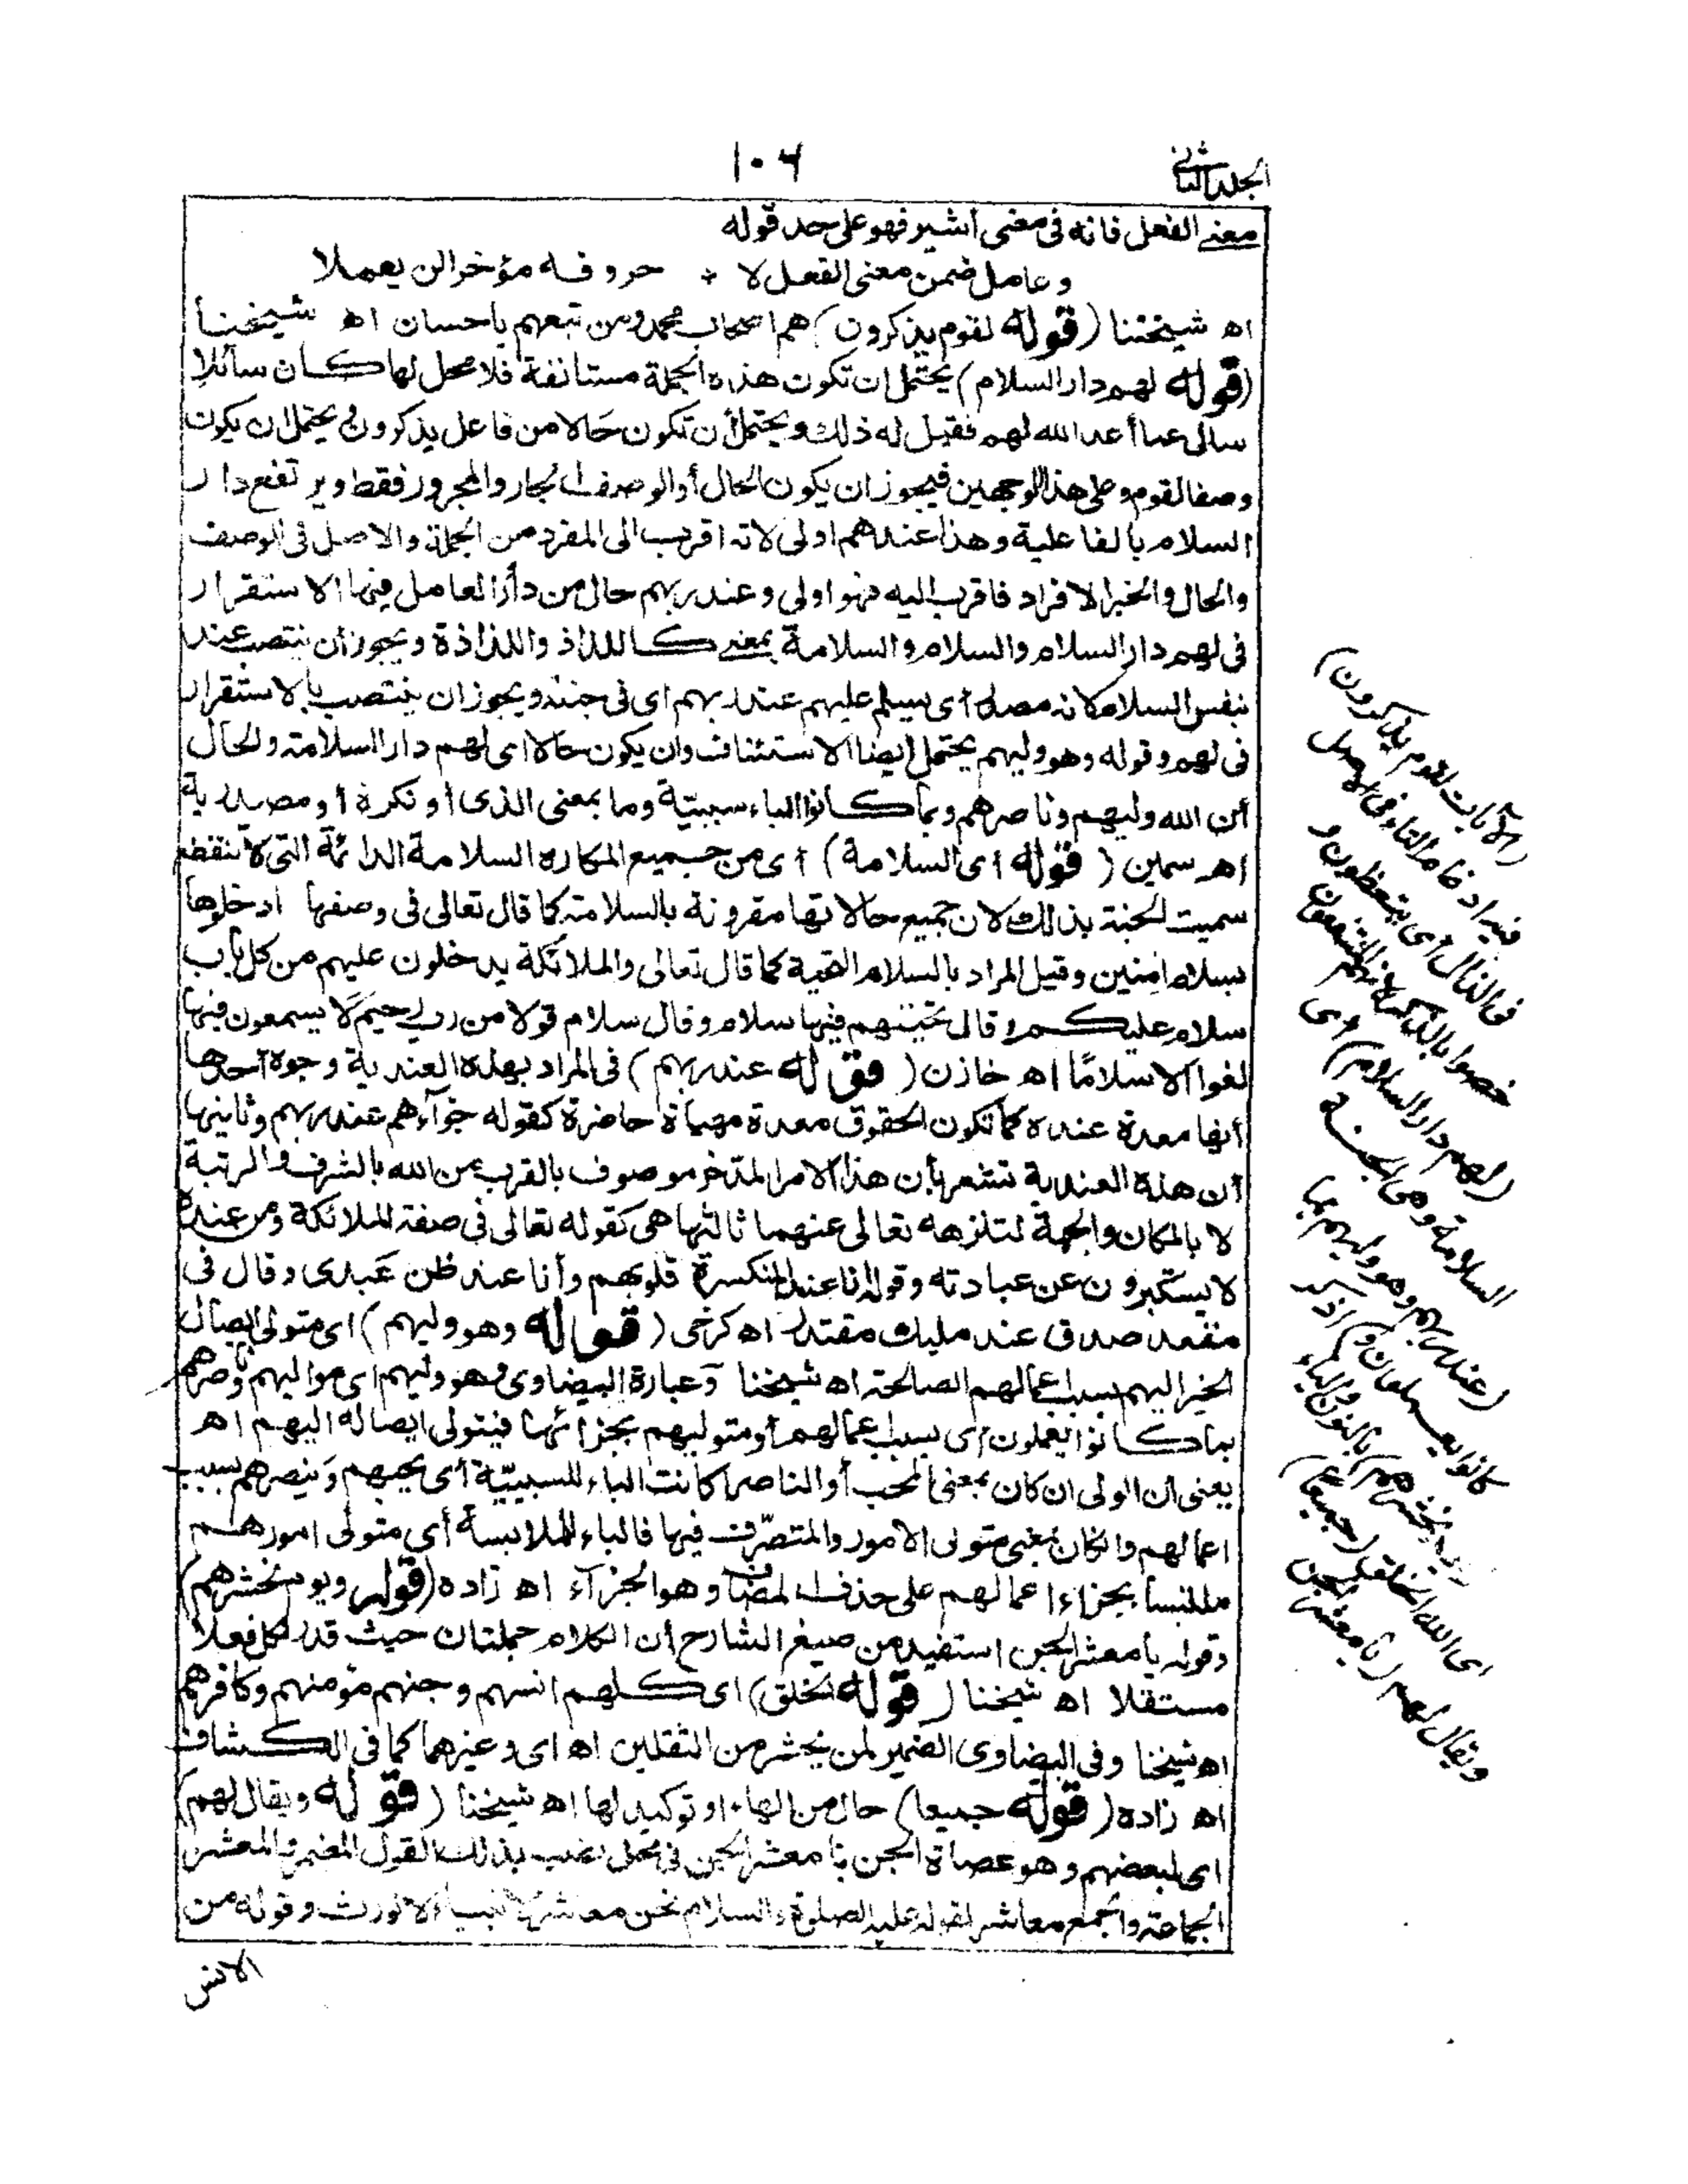 الجلد الثانى
١٠٦
معنى الفعل فانه فى معنى أشير فهو على حد قوله
وعامل ضمن معنى الفعل لا * حروفه مؤخرا لن يعملا
اه شيخنا (قوله لقوم يذكرون) هم اصحاب محمد ومن تبعهم باحسان اه شيخنا
(قوله لهم دار السلام) يحتمل ان تكون هذه الجملة مستانفة فلا محل لها كان سائلا
سال عما أعد الله لهم فقيل له ذلك ويحتمل أن تكون حالا من فاعل يذكرون ويحتمل ان يكون
وصفا لقوم وعلى هذا الوجهين فيجوز ان يكون الحال أو الوصف الجار والمجرور فقط ويرتفع دار
السلام بالفاعلية وهذا عندهم اولى لانه اقرب الى المفرد من الجملة والاصل فى الوصف
والحال والخبر الافراد فاقرب اليه فهو اولى وعند ربهم حال من دار العامل فيها الاستقرار
فى لهم دار السلام والسلام والسلامة بمعنى كاللذاذ واللذاذة ويجوز أن ينتصب عند
بنفس السلام لانه مصدر أى يسلم عليهم عند ربهم اى فى جنته ويجوز ان ينتصب بالاستقرار
فى لهم وقوله وهو وليهم يحتمل ايضا الاستئناف وان يكون حالا اى لهم دار السلامة والحال
أن الله وليهم وناصرهم وبما كانوا الباء سببيّة وما بمعنى الذى أو نكرة أو مصدرية
اهـ سمين (قوله أى السلامة) أى من جميع المكاره السلامة الدائمة التى لا تنقطع
سميت الجنة بذلك لان جميع حالاتها مقرونة بالسلامة كما قال تعالى فى وصفها ادخلوها
بسلام امنين وقيل المراد بالسلام التحية كما قال تعالى والملائكة يدخلون عليهم من كل باب
سلام عليكم وقال تحيتهم فيها سلام وقال سلام قولا من رب رحيم لا يسمعون فيها
لغوا الا سلامًا اه خازن (قوله عند ربهم) فى المراد بهذه العندية وجوه احدها
أنها معدة عنده كما تكون الحقوق معدة مهيأة حاضرة كقوله جزآءهم عند ربهم وثانيها
أن هذه العندية تشعر بأن هذا الامر المدخر موصوف بالقرب من الله بالشرف والرتبة
لا بالمكان والجهة لتنزهه تعالى عنهما ثالثها هى كقوله تعالى فى صفة الملائكة ومن عنده
لا يستكبرون عن عبادته وقوله انا عند المنكسرة قلوبهم وأنا عند ظن عبدى وقال فى
مقعد صدق عند مليك مقتدر اه كرخى (قوله وهو وليهم) اى متولى ايصال
الخير اليهم بسبب اعمالهم الصالحة اه شيخنا وعبارة البيضاوى وهو وليهم اى مواليهم وناصرهم
بما كانوا يعملون أى بسبب اعمالهم أو متوليهم بجزائها فيتولى ايصاله اليهم اهـ
يعنى ان الولى ان كان بمعنى المحب أو الناصر كانت الباء للسببيّة أى يحبهم وينصرهم بسبب
اعمالهم وان كان بمعنى متولى الامور والمتصرّف فيها فالباء للملابسة أى متولى امورهم
ملتبسا بجزاء اعمالهم على حذف المضاف وهو الجزآء اه زاده (قوله ويوم نحشرهم)
وقوله يا معشر الجن استفيد من صيغ الشارح أن الكلام جملتان حيث قدر لكل فعلا
مستقلا اه شيخنا (قوله الخلق) اى كلهم انسهم وجنهم مؤمنهم وكافرهم
اه شيخنا وفى البيضاوى الضمير لمن يحشر من الثقلين اه اى وغيرهما كما فى الكشاف
اه زاده (قوله جميعا) حال من الهاء او توكيد لها اه شيخنا (قوله ويقال لهم)
اى لبعضهم وهو عصاة الجن يا معشر الجن فى محل نصب بذلك القول المضمر والمعشر
الجماعة والجمع معاشر لقوله عليه الصلوة والسلام نحن معاشر الانبياء لا نورث وقوله من
الانس
الآيات لقوم يذكرون)
فيه ادغام التاء فى الاصل
فى الذال أى يتعظون و
خصوا بالذكر لانهم المنتفعون
(لهم دار السلام) أى
السلامة وهى الجنة
(عند ربهم وهو وليهم بما
كانوا يعملون و) اذكر
(يوم نحشرهم) بالنون والياء
اى الله الخلق (جميعا)
ويقال لهم (يا معشر الجن